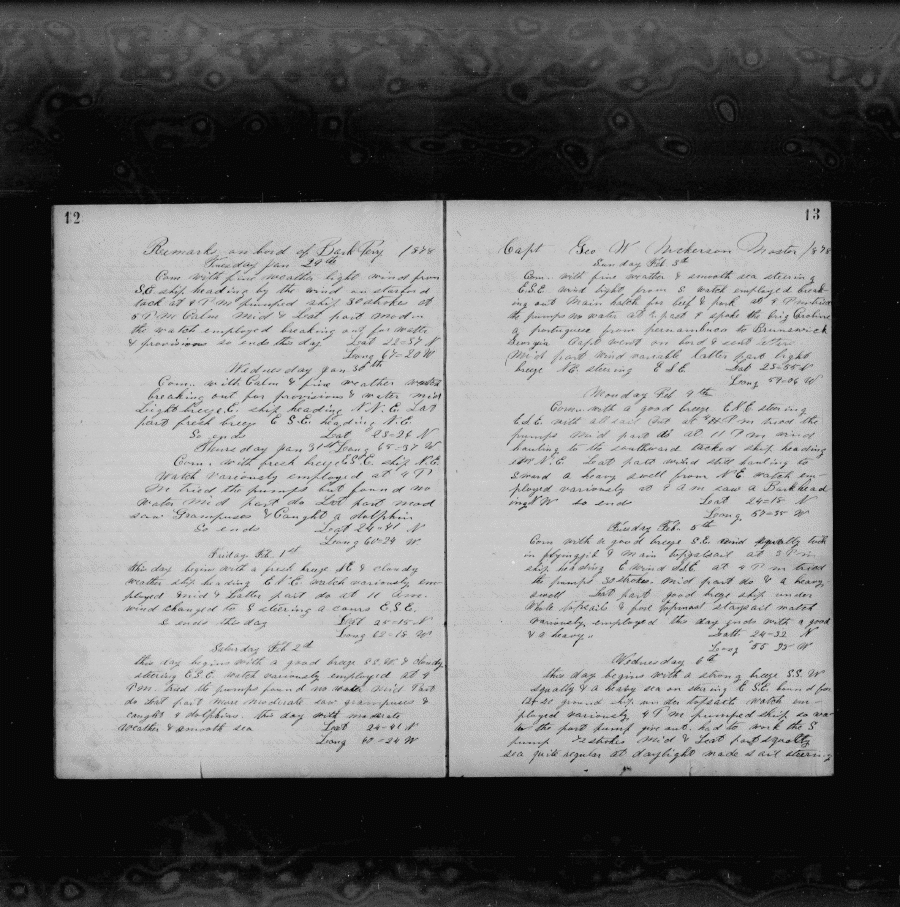 12
Remarks on bord of Bark 1878
Tuesday Jan 29th
Com with fine weather light wind from
S.E ship heading by the wind on starbord
tack at 4 P M pumped ship 30 strokes at
5 P M Calm Mid & Last part
the watch employed breaking out for watter
& provisions so ends this day Lat 22-57 N
Long 67-20 W
Wednesday Jan 30th
Com. with Calm & fine weather watch
breaking out for provisions & water mid
Light breeze E. ship heading N.N.E. Last
part fresh breeze E S.E. heading N.E
So ends Lat 23-26 N
Thursday Jan 31st Long 65-37 W
Com. with fresh breeze E.S.E. ship N.E.
Watch variously employed at 4 P
M tried the pumps but found no
water Mid part do Last part mod
saw Grampuses & Caught a dolphin
So ends Lat 24-41 N
Long 60-24 W
Friday Feb 1st
this day begin with a fresh breeze & cloudy
weather ship heading E.N.E. watch variously em-
ployed & mid & Latter part do at 11 A m.
wind changed to S steering a cours E.S.E.
S ends this day Lat 25-15 N
Long 62-18 W
Saturday Feb 2th
this day begins with a good breeze S.S.W. & cloudy
steering E.S.E. watch variously employed at 4
P M. tried the pumps found no water Mid Part
do Last part more moderate saw grampuses &
caught 2 dolphins. this day with moderate
weather & smooth sea Lat 24-41 N
Long 60-24 W
13
Capt Geo W. Nickerson Master 1878
Sunday Feb 3th
Com. with fine weather & smooth sea steering
E.S.E. wind light from S watch employed break-
ing out Main hatch for beef & pork at 4 P M tried
the pumps no water at & spoke the brig Caroline
a portuguese from pernambuco to Brunswick
Georgia Capt went on bord & sent letters
Mid part wind variable latter part light
breeze N.E. steering E S E Lat 25-55 N
Long 59-06 W
Monday Feb 4th
Com. with a good breeze E.N.E steering
with all sail out at 4 P M tried the
pumps mid part do at 11 P M wind
hauling to the southward tacked ship heading
N.E. Last part wind still hauling to
S ward a heavy swell from N E watch em-
ployed variously at A M saw a Bark head
ing N W so ends Lat 24-18 N
Long 57-35 W
Tuesday Feb. 5th
Com with a good breeze S.E. wind squally took
in flyinggib & main topgalsail at 3 P M
ship heading E wind S.S.E at 4 P m tried
the pumps 30 strokes. Mid part do & a heavy
swell Last part good breeze ship under
Whole topsails & fore topmast staysail watch
variously employed this day ends with a good
& a heavy.. Latt 24-32 N
Long 55 W
Wednesday 6th
this day begins with a strong breeze S.S.W
squally & a heavy sea on stearing E S.E.
ship under topsails watch em-
ployed variously 4 P M pumped ship
the port pump give out had to work the S
pump strokes Mid & Last part squally
sea quite regular at daylight made sail steering